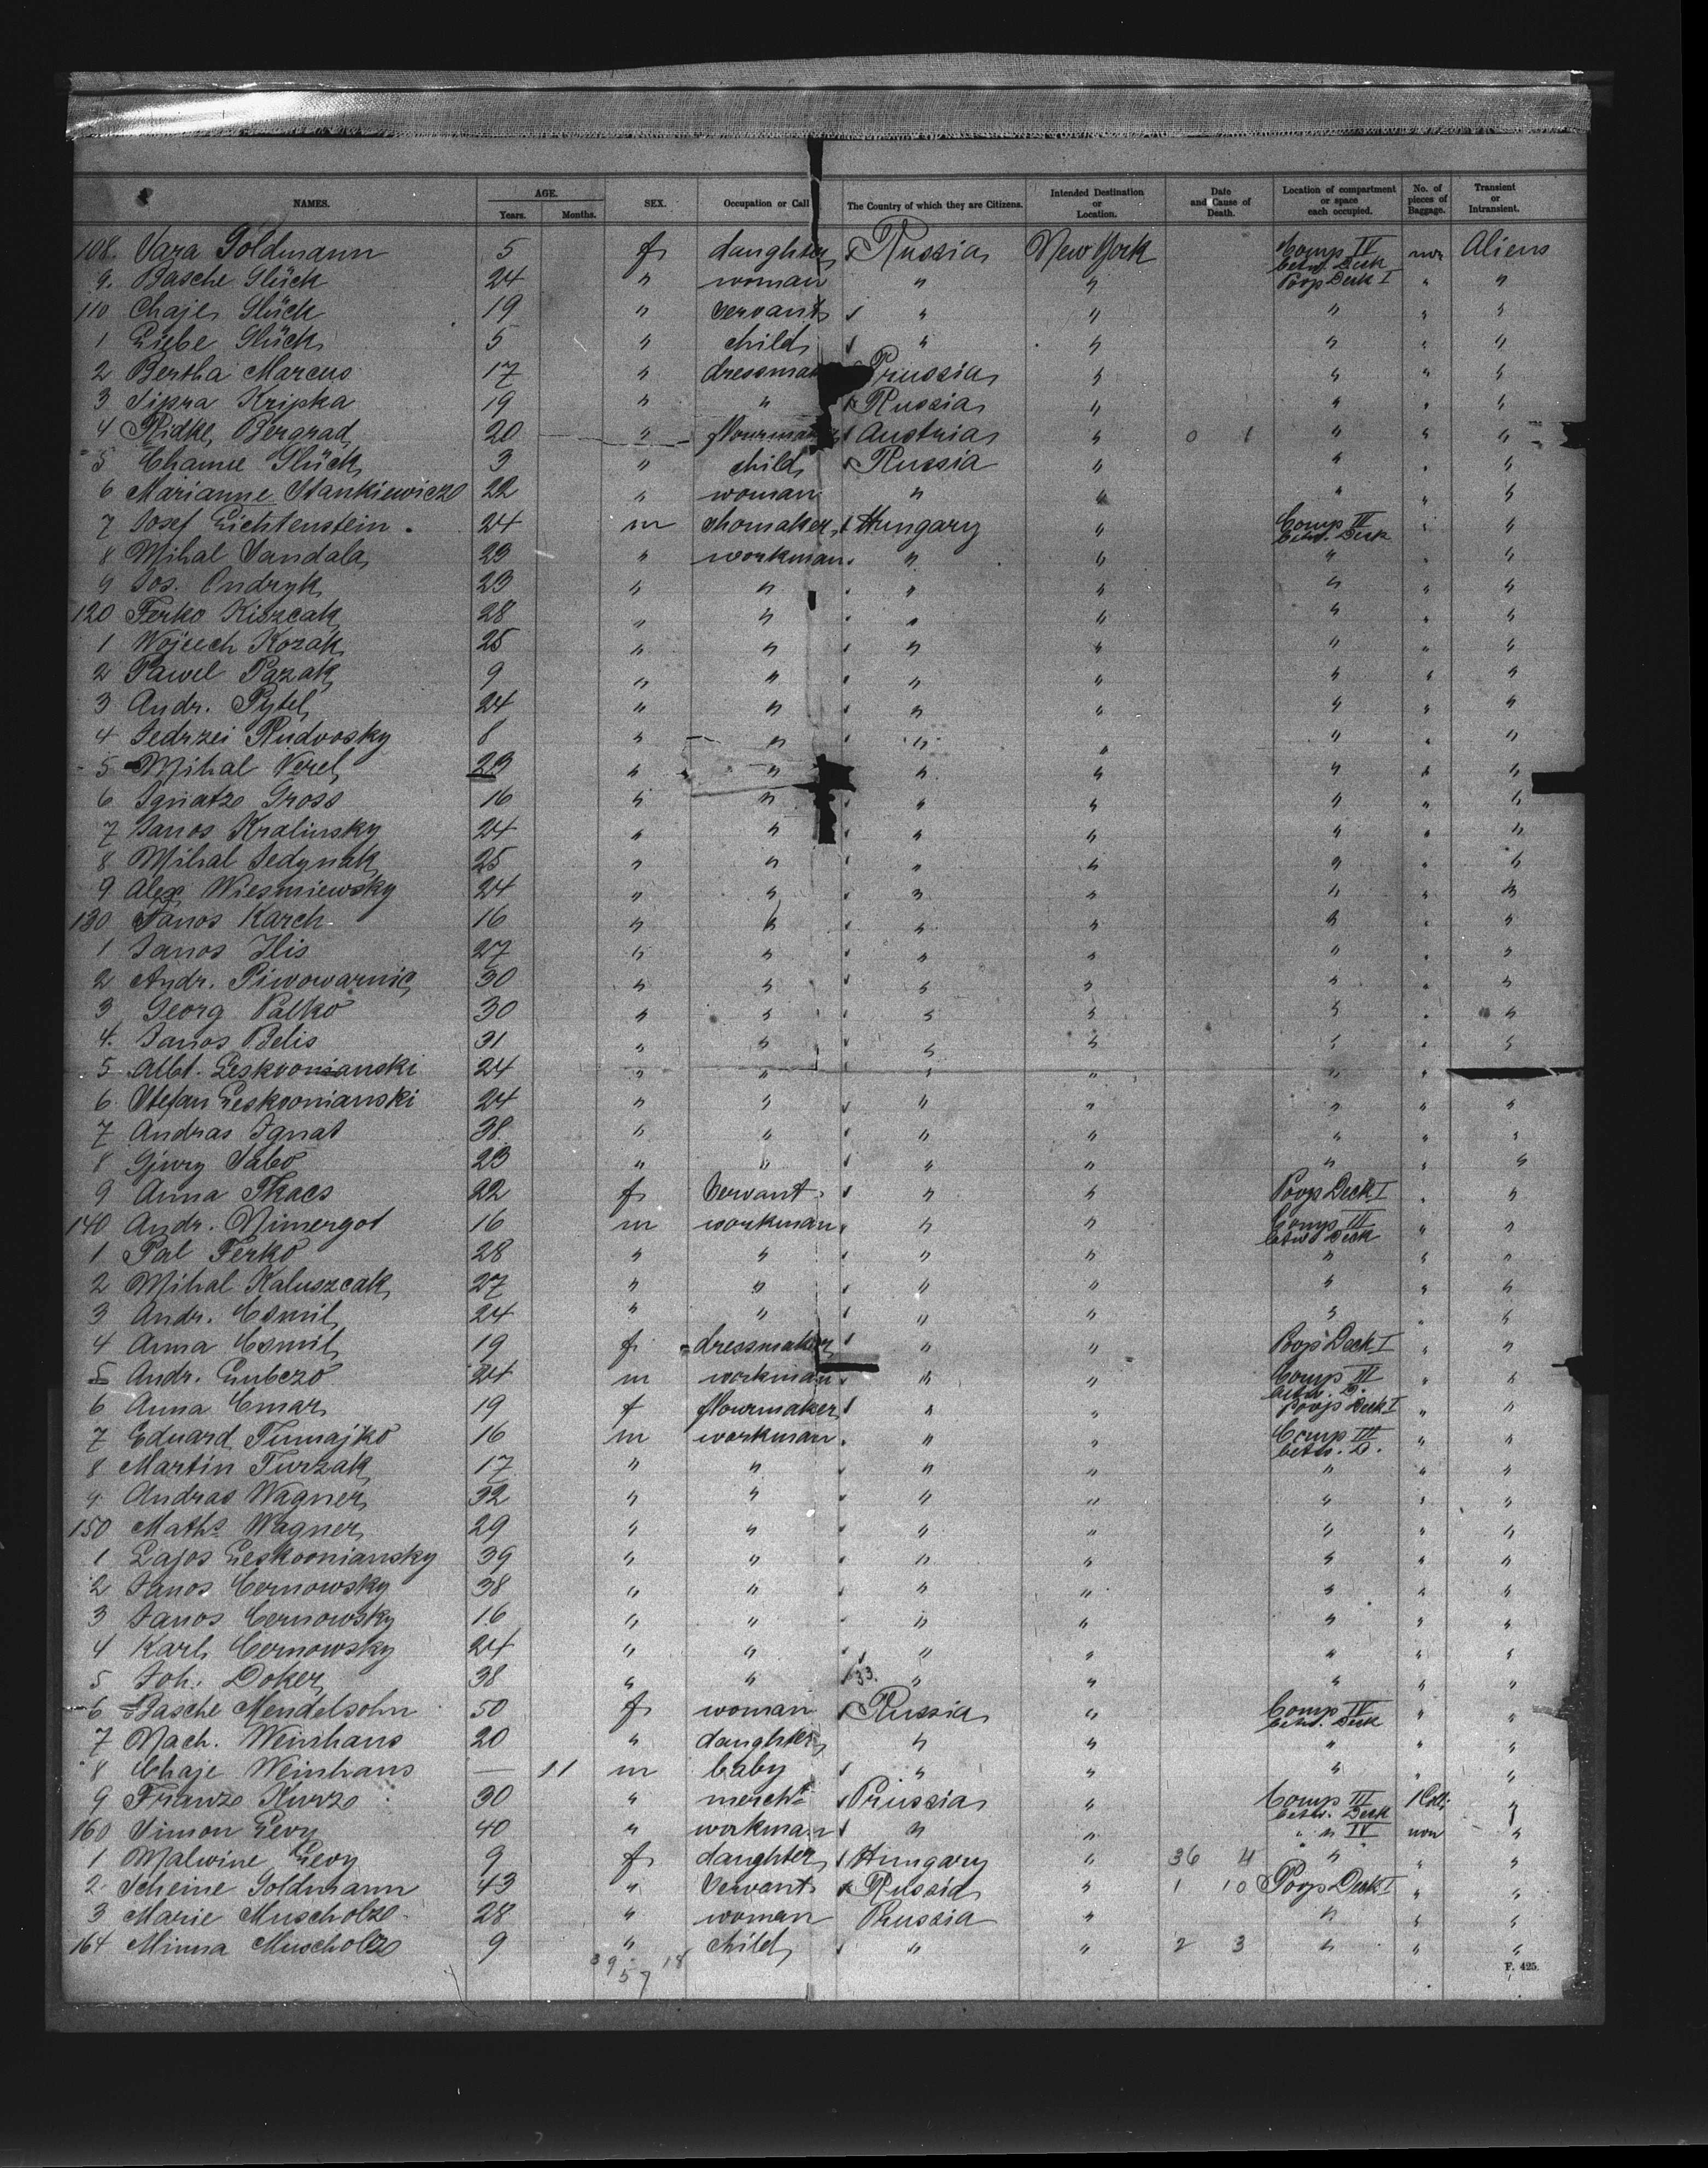 NAMES. AGE. Years. Months. SEX. Occupation or Call The Country of which they are Citizens. Intended Destination or Location. Date and Cause of Death. Location of compartment or space each occupied. No. of pieces of Baggage. Transient or Intransient.
108. Sara Goldmann 5 f daughter Russia New York Comp IV betw. Deck non Aliens
9. Basche Glück 24 " woman " " Poop Deck I " "
110 Chaje Glück 19 " servant " " " " "
1 Liebe Glück 5 " child " " " " "
2 Bertha Marcus 17 " dressmak Prussia " " " "
3 Sipra Kripka 19 " " Russia " " " "
4 Ridke Bergrad 20 " flourmak Austria " 0 1 " " "
5 Channe Glück 3 " child Russia " " " "
6 Marianne Stankiewicz 22 " woman " " " " "
7 Josef Lichtenstein 24 m shomaker Hungary " Comp III betw. Deck " "
8 Mihal Sandala 23 " workman " " " " "
9 Jos. Ondryk 23 " " " " " " "
120 Ferko Kiszcak 28 " " " " " " "
1 Wojcech Kozak 25 " " " " " " "
2 Pawel Pazak 9 " " " " " " "
3 Andr. Pytel 24 " " " " " " "
4 Jedrzei Rudvosky 8 " " " " " " "
5 Mihal Verel 23 " " " " " " "
6 Ignatz Gross 16 " " " " " " "
7 Janos Kralinsky 24 " " " " " " "
8 Mihal Jedynak 25 " " " " " " "
9 Alex Wiesniewsky 24 " " " " " " "
130 Janos Karch 16 " " " " " " "
1 Janos Ilis 27 " " " " " " "
2 Andr. Piwowarnic 30 " " " " " " "
3 Georg Palko 30 " " " " " " "
4. Janos Belis 31 " " " " " " "
5 Albt. Leskovonianski 24 " " " " " " "
6 Stefan Leskovonianski 24 " " " " " " "
7 Andras Ignat 38 " " " " " " "
8 Gjury Sabo 23 " " " " " " "
9 Anna Tkacs 22 f servant " " Poop Deck I " "
140 Andr. Nimergot 16 m workman " " Comp III betw Deck " "
1 Pal Ferko 28 " " " " " " "
2 Mihal Kaluszcak 27 " " " " " " "
3 Andr. Csmil 24 " " " " " " "
4 Anna Csmil 19 f dressmaker " " Poop Deck I " "
5 Andr. Lubczo 24 m workman " " Comp III betw. D. " "
6 Anna Cmar 19 f flourmaker " " Poop Deck I " "
7 Eduard Tumajko 16 m workman " " Comp III betw. D. " "
8 Martin Turzak 17 " " " " " " "
9 Andras Wagner 32 " " " " " " "
150 Maths Wagner 29 " " " " " " "
1 Lajos Leskovoniansky 39 " " " " " " "
2 Janos Cernowsky 38 " " " " " " "
3 Janos Cernowsky 16 " " " " " " "
4 Karl Cernowsky 24 " " " " " " "
5 Joh. Doker 38 " " 33. " " " " "
6 Basche Mendelsohn 50 f woman Russia " Comp IV betw. Deck " "
7 Nach. Weinhaus 20 " daughter " " " " "
8 Chaje Weinhaus — 11 m baby " " " " "
9 Franz Kurz 30 " mercht Prussia " Comp III betw. Deck 1 Coll. "
160 Simon Levy 40 " workman " " " " IV non "
1 Malwine Levy 9 f daughter Hungary " 36 4 " " "
2 Scheine Goldmann 43 " servant Russia " 1 10 Poop Deck I " "
3 Marie Muscholz 28 " woman Prussia " " " "
164 Minna Muscholz 9 " child " " 2 3 " " "
39 57 18
F. 425.